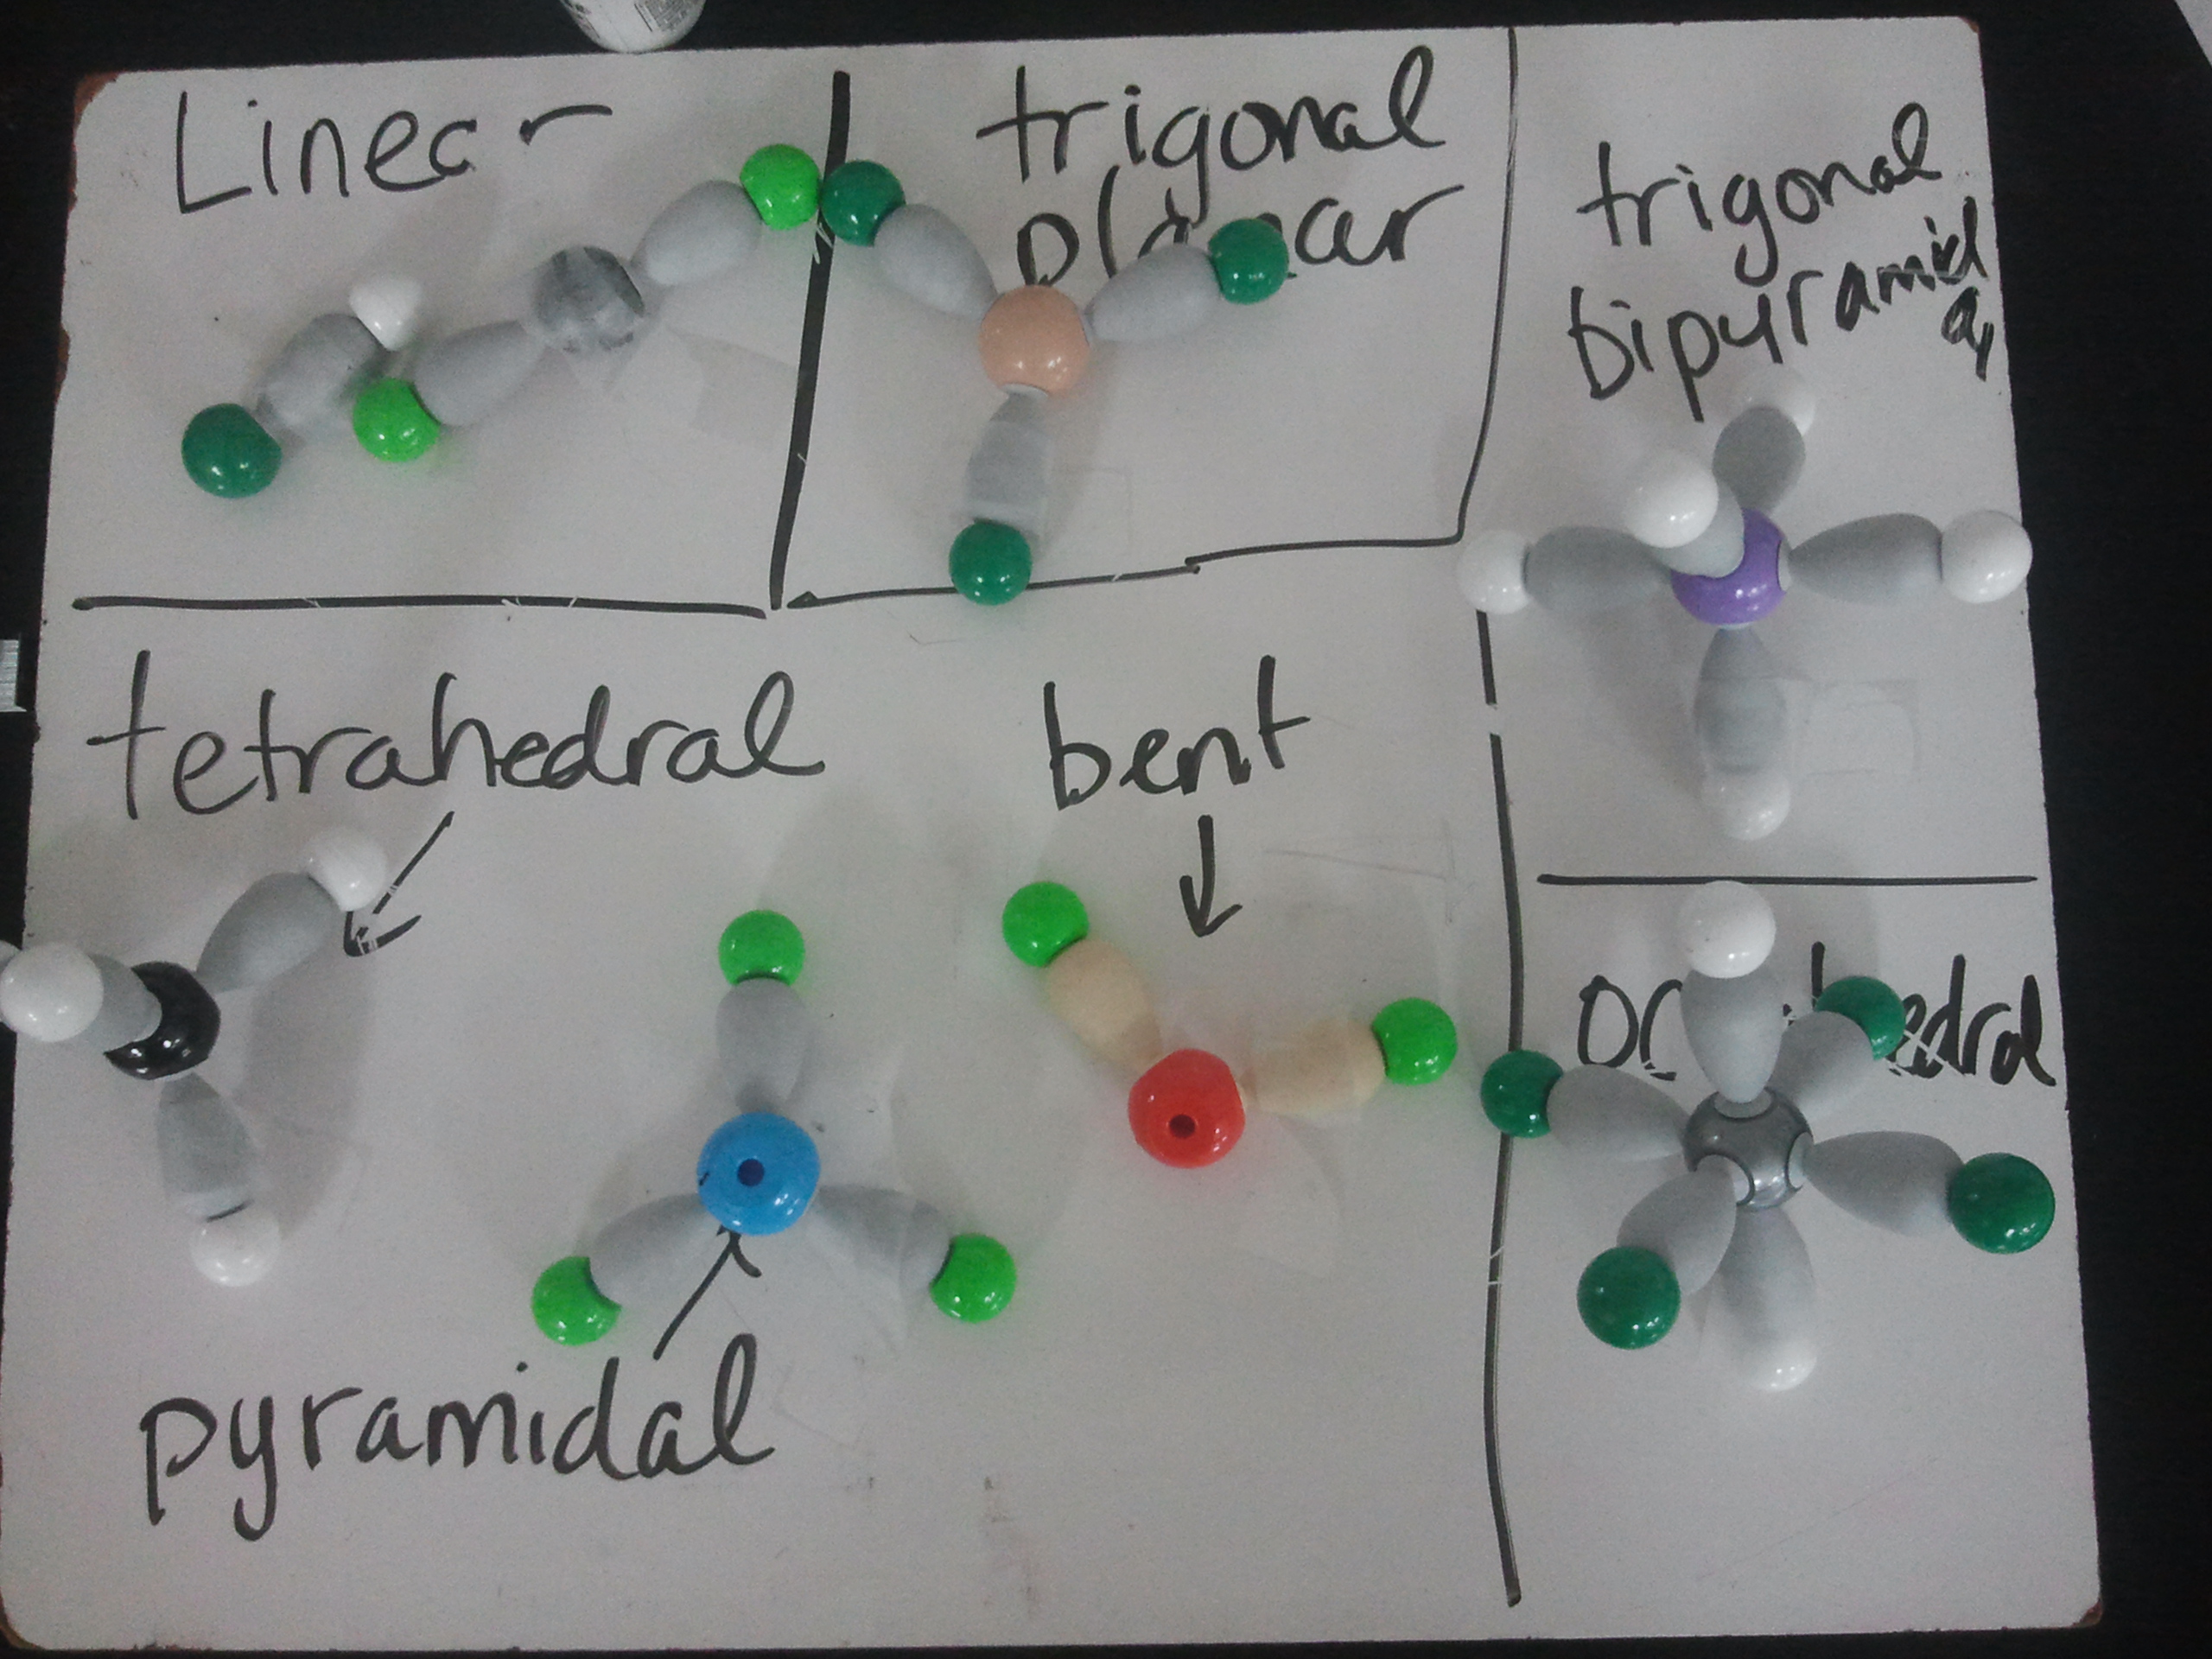 Linear
trigonal
planar
trigonal
bipyramid
al
tetrahedral
bent
pyramidal
octahedral